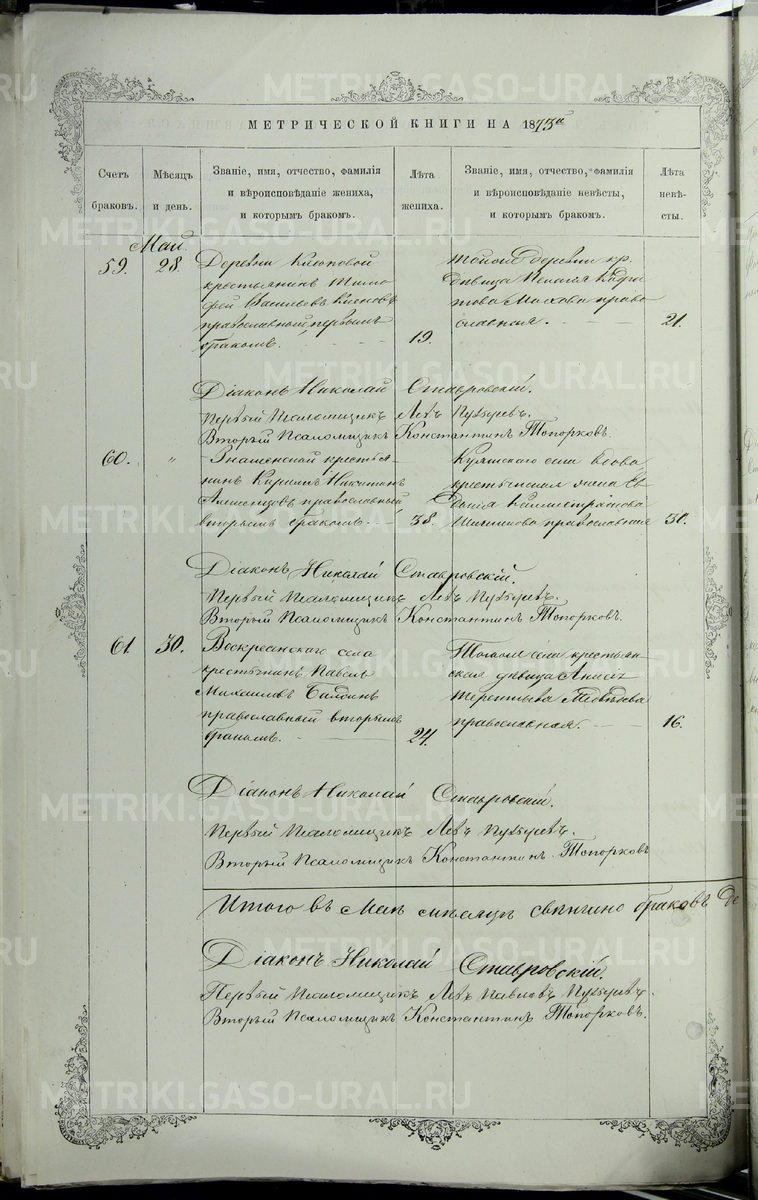 МЕТРИЧЕСКОЙ КНИГИ НА 1873й
Счетъ браковъ.
Мѣсяцъ и день.
Званіе, имя, отчество, фамилія и вѣроисповѣданіе жениха, и которымъ бракомъ.
Лѣта жениха.
Званіе, имя, отчество, фамилія и вѣроисповѣданіе невѣсты, и которымъ бракомъ.
Лѣта невѣсты.
Май
59.
28.
Деревни
крестьянинъ Тимо
фей Васильевъ
православный, первымъ
бракомъ.
19.
тойже деревни кр.
дѣвица Пелагія
православная.
21.
Діаконъ Николай Ставровскій.
Первый Псаломщикъ Левъ
Второй Псаломщикъ Константинъ Топорковъ.
60.
"
Знаменской крестья
нинъ Кириллъ Никитинъ
православный
вторымъ бракомъ.
38.
села вдова
крестьянская жена Ев
докія
православная
30.
Діаконъ Николай Ставровскій.
Первый Псаломщикъ Левъ
Второй Псаломщикъ Константинъ Топорковъ.
61.
30.
Воскресенскаго села
крестьянинъ Павелъ
Михаиловъ
православный вторымъ
бракомъ.
24.
Тогоже села крестьян
ская дѣвица Анисья
Терентьева Медвѣдева
православная.
16.
Діаконъ Николай Ставровскій.
Первый Псаломщикъ Левъ
Второй Псаломщикъ Константинъ Топорковъ
Итого въ Маѣ мѣсяцѣ свѣнчано браковъ
Діаконъ Николай Ставровскій.
Первый Псаломщикъ Левъ Павловъ
Второй Псаломщикъ Константинъ Топорковъ.
METRIKI.GASO-URAL.RU